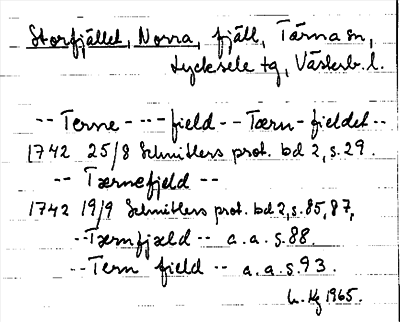 Storfjället, Norra, fjäll, Tärna sn,
Lycksele tg, Västerb. l.
-- Terne ---- field -- Tærn-fieldet --
1742 25/8 Schnitlers prot. bd 2, s. 29.
-- Tærnefjeld --
1742 19/9 Schnitlers prot. bd 2, s. 85, 87,
-- Tærnfjæld -- a.a. s. 88.
-- Tern field -- a.a. s. 93.
1965.